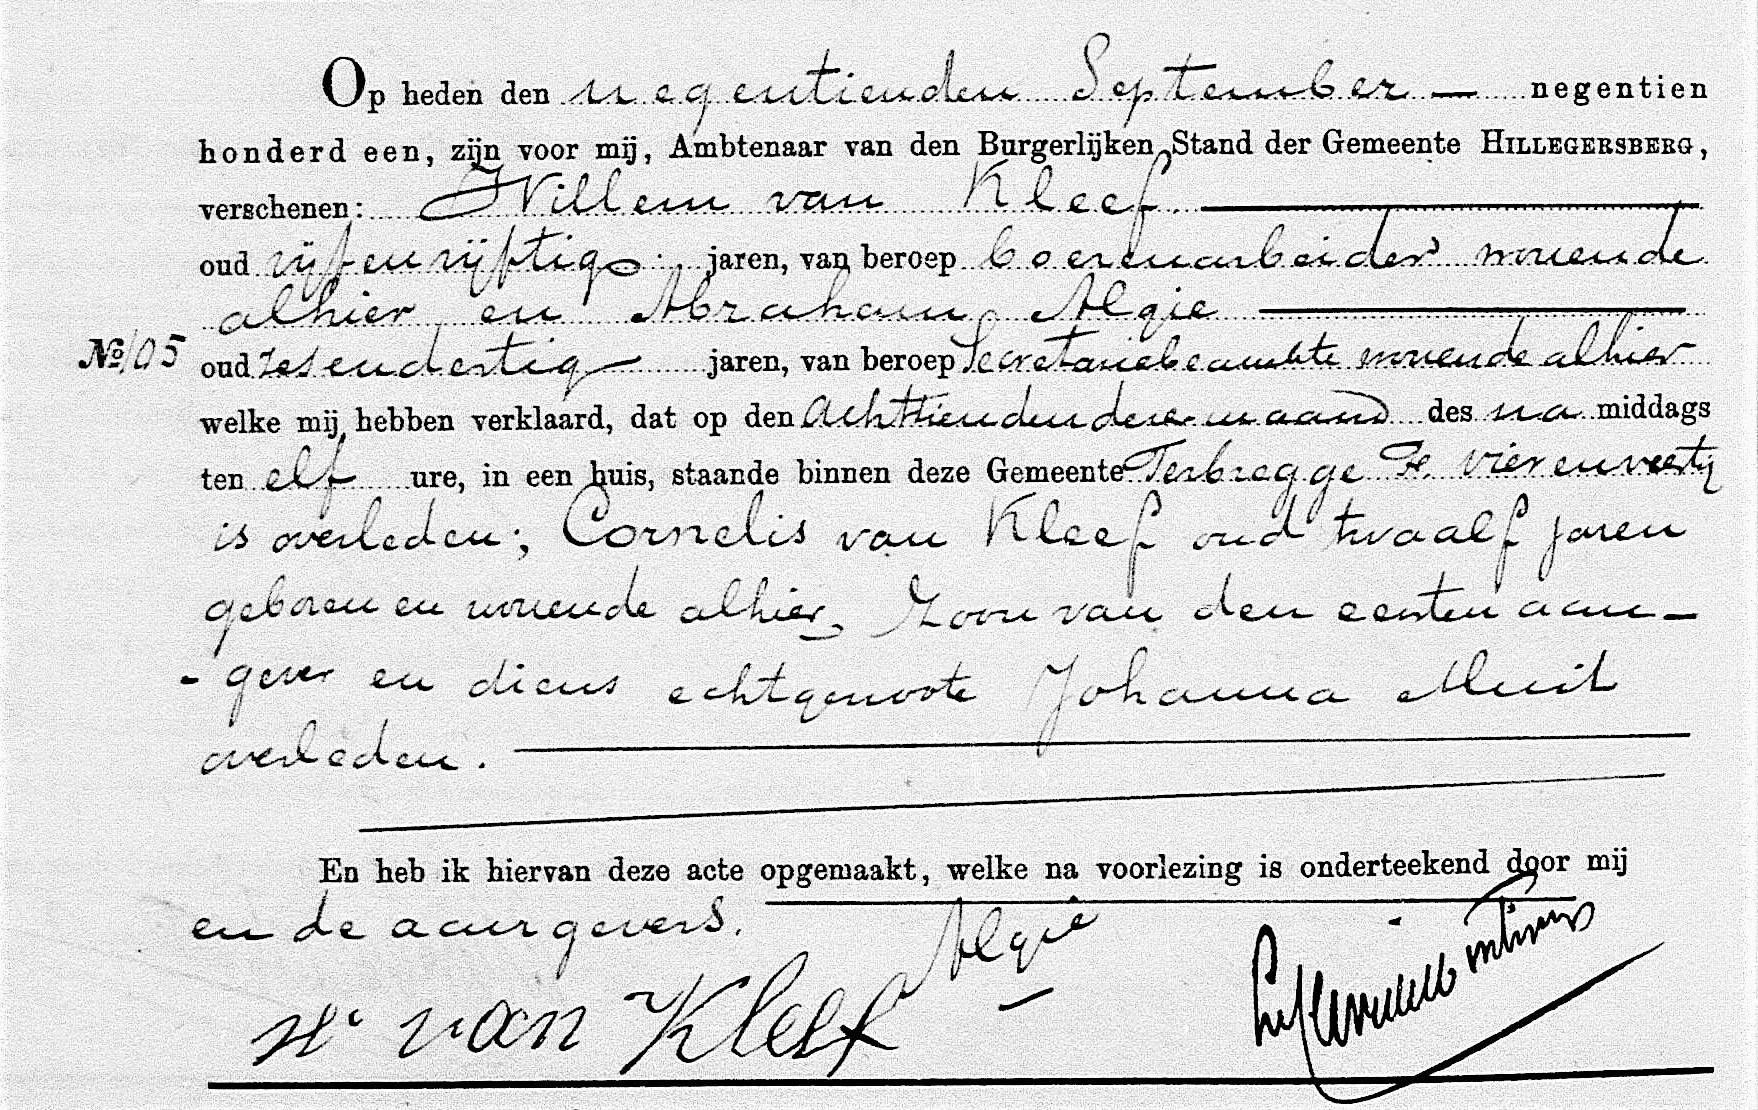 Op heden den negentienden September — negentien
honderd een, zijn voor mij, Ambtenaar van den Burgerlijken Stand der Gemeente HILLEGERSBERG,
verschenen: Willem van Kleef.
oud vijfenvijftig jaren, van beroep boerenarbeider wonende
alhier en Abraham Algie
No 105 oud zesendertig jaren, van beroep Secretariebeambte wonende alhier
welke mij hebben verklaard, dat op den achttienden dezer maand des na middags
ten elf ure, in een huis, staande binnen deze Gemeente Terbregge vierenveertig
is overleden; Cornelis van Kleef oud twaalf jaren
geboren en wonende alhier, Zoon van den eersten aan-
-gever en diens echtgenoote Johanna Muit
overleden.
En heb ik hiervan deze acte opgemaakt, welke na voorlezing is onderteekend door mij
en de aangevers.
Algie
W. van Kleef